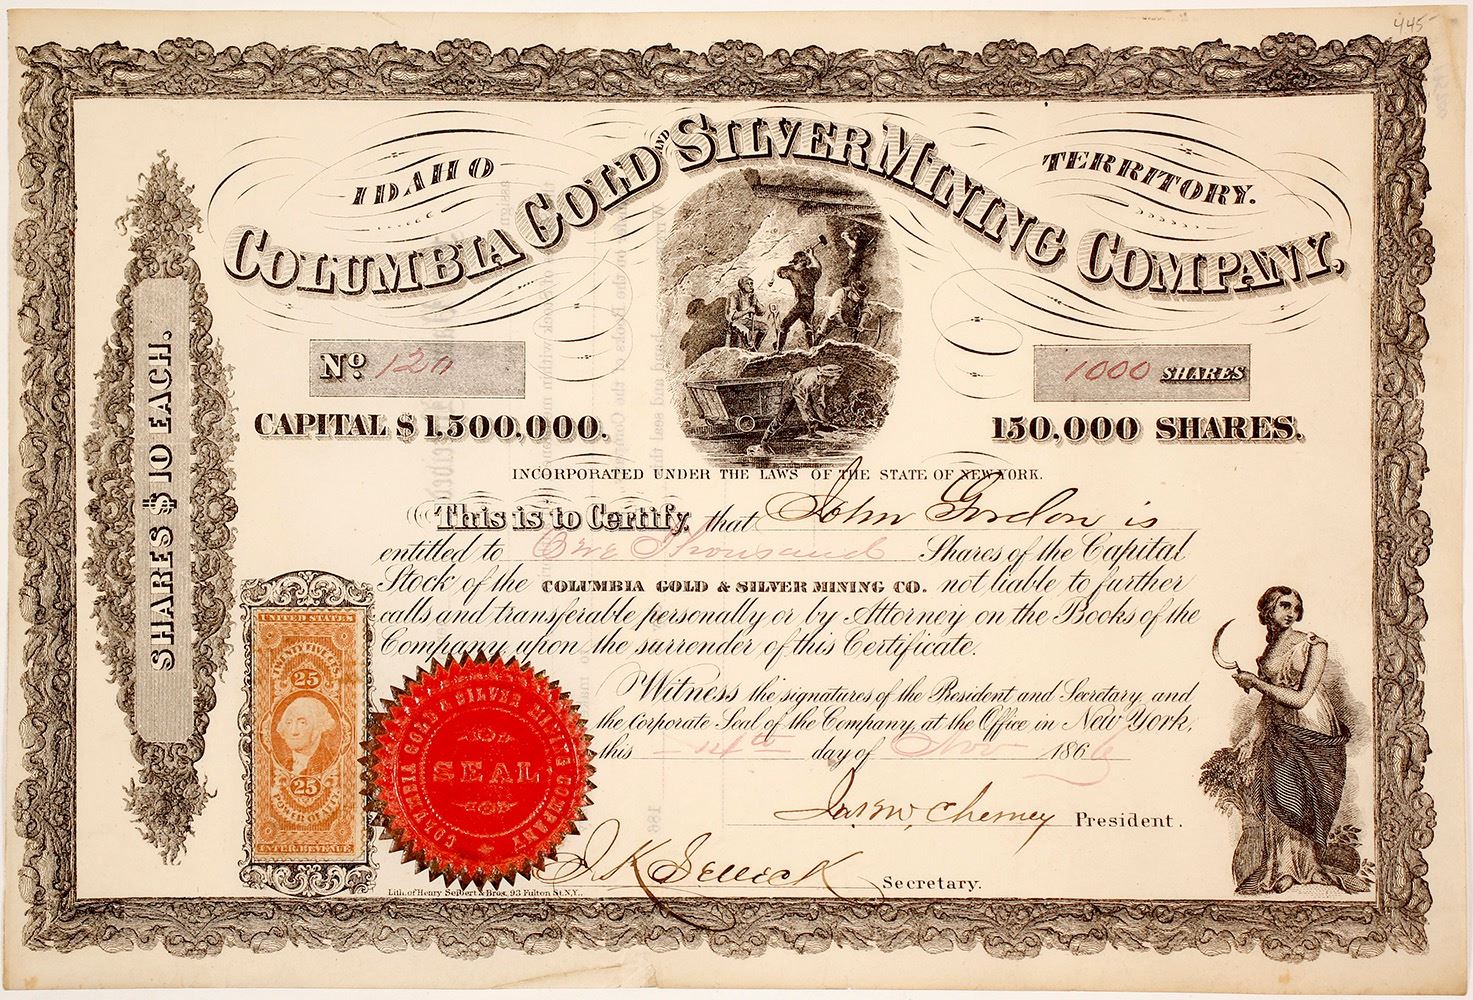 445-
IDAHO TERRITORY.
COLUMBIA GOLD AND SILVER MINING COMPANY,
No 120
1000 SHARES
CAPITAL $1,500,000.
150,000 SHARES.
SHARES $10 EACH.
INCORPORATED UNDER THE LAWS OF THE STATE OF NEW YORK.
This is to Certify, that John Gordon is
entitled to One Thousand Shares of the Capital
Stock of the COLUMBIA GOLD & SILVER MINING CO. not liable to further
calls and transferable personally or by Attorney on the Books of the
Company upon the surrender of this Certificate.
Witness the signatures of the President and Secretary, and
the Corporate Seal of the Company, at the Office in New York,
this 14th day of Nov 1866
President.
Secretary.
UNITED STATES
TWENTY FIVE CTS
25
25
POWER OF ATT'Y
INTER. REVENUE.
COLUMBIA GOLD & SILVER MINING COMPANY
SEAL
Lith. of Henry Seibert & Bros. 93 Fulton St. N.Y.